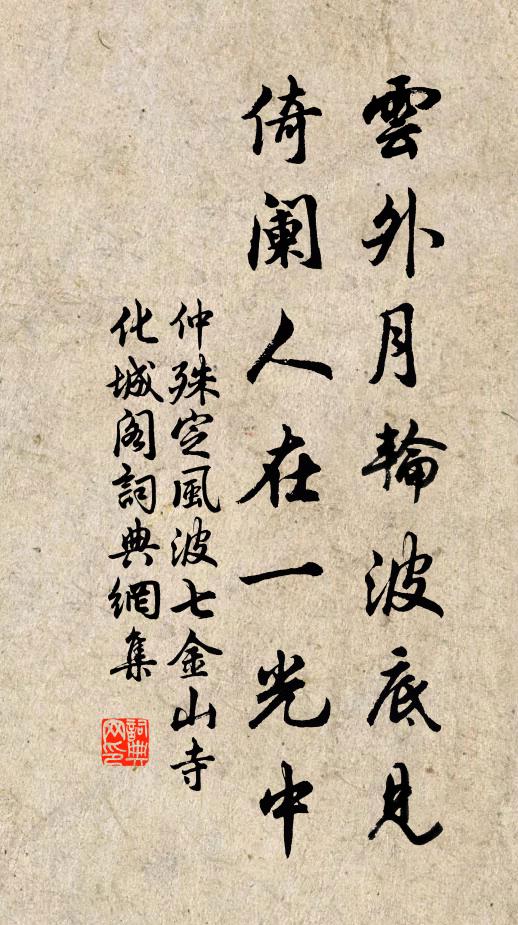 雲外月輪波底見
倚阑人在一光中
仲殊定風波七金山寺
化城阁詞典網集
詞典网印